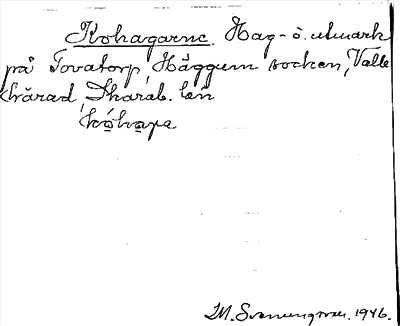 Kohagarne. Hag- o. utmark
på Tovatorp, Häggum socken, Valle
härad, Skarab. län
M. 1946.